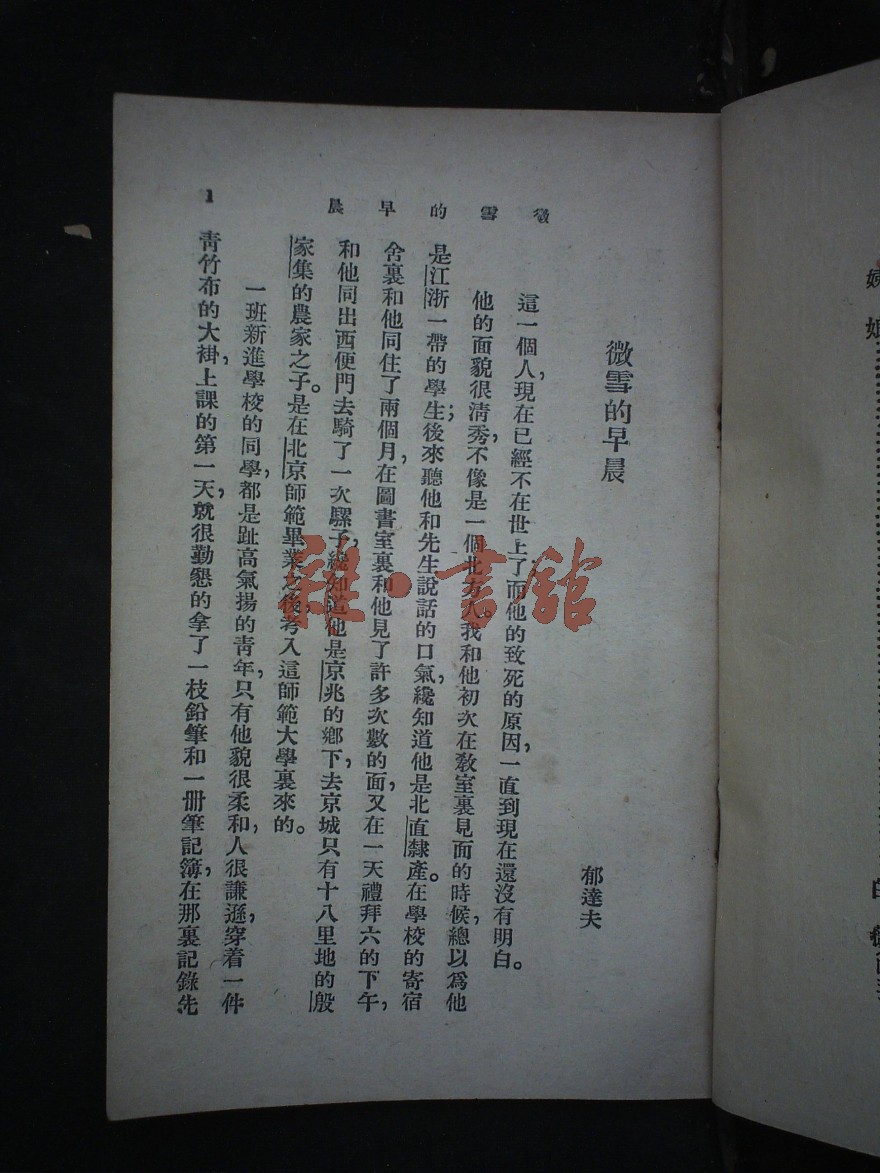 微雪的早晨
微雪的早晨
郁達夫
這一個人，現在已經不在世上了，而他的致死的原因，一直到現在還沒有明白。
他的面貌很清秀，不像是一個北方人。我和他初次在敎室裏見面的時候，總以爲他
是江浙一帶的學生；後來聽他和先生說話的口氣，纔知道他是北直隸產。在學校的寄宿
舍裏和他同住了兩個月，在圖書室裏和他見了許多次數的面，又在一天禮拜六的下午，
和他同出西便門去騎了一次騾子，纔知道他是京兆的鄉下，去京城只有十八里地的殷
家集的農家之子。是在北京師範畢業之後，考入這師範大學裏來的。
一班新進學校的同學，都是趾高氣揚的靑年，只有他，貌很柔和，人很謙遜，穿着一件
靑竹布的大褂，上課的第一天，就很勤懇的拿了一枝鉛筆和一册筆記簿，在那裏記錄先
1
雜·書舘